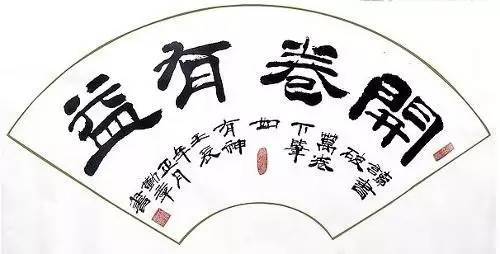 開卷有益
讀書破萬卷下筆如有神
壬辰年正月